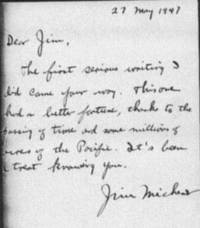 27 May 1997
Dear Jim,
The first serious writing I
did came your way. This one
had a better fortune, thanks to the
passing of time and some millions of
of the Pacific. It's been
a treat knowing you.
Jim